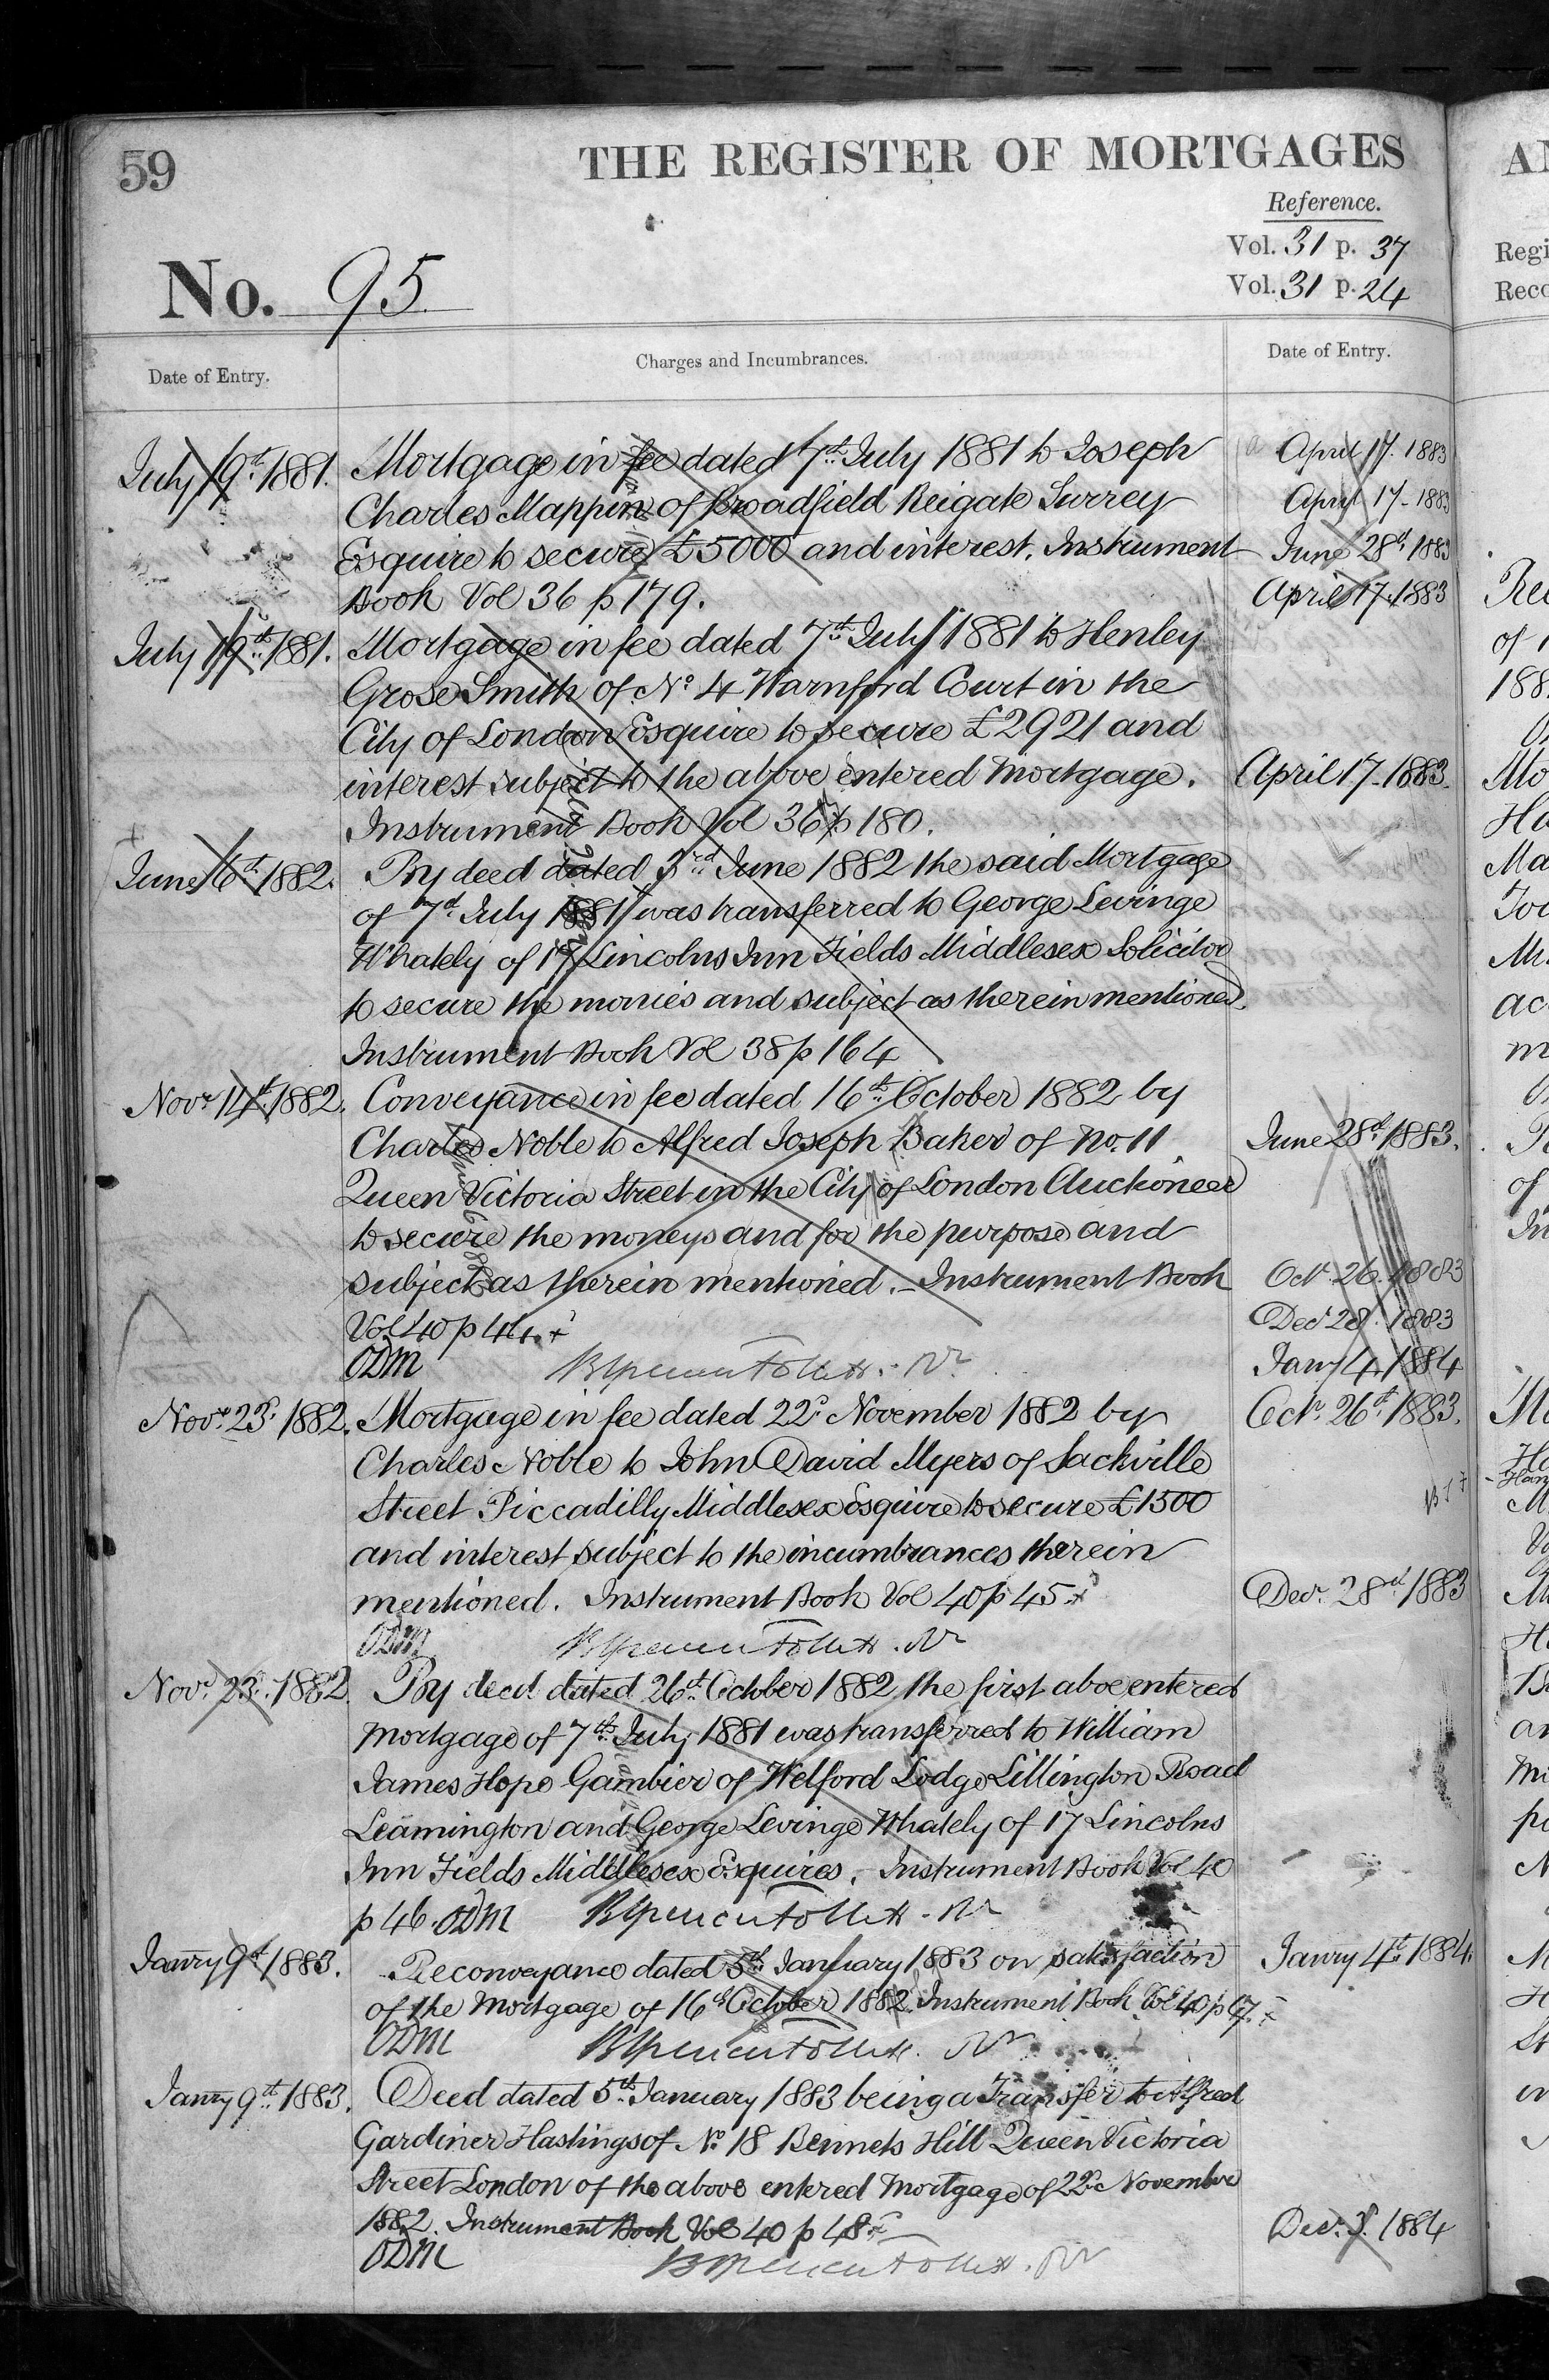 59
THE REGISTER OF MORTGAGES
Reference.
Vol. 31 p. 37
Vol. 31 p. 24
No. 95.
Date of Entry.
Charges and Incumbrances.
Date of Entry.
July 19th 1881.
Mortgage in fee dated 7th July 1881 to Joseph
Charles Mappin of Broadfield Reigate Surrey
Esquire to secure £5000 and interest. Instrument
Book Vol 36 p 179.
July 19th 1881.
Mortgage in fee dated 7th July 1881 to Henley
Grose Smith of No 4 Warnford Court in the
City of London Esquire to secure £2921 and
interest subject to the above entered Mortgage.
Instrument Book Vol 36 p 180.
June 16th 1882.
By deed dated 3rd June 1882 the said Mortgage
of 7th July 1881 was transferred to George Levinge
Whately of 17 Lincolns Inn Fields Middlesex Solicitor
to secure the monies and subject as therein mentioned.
Instrument Book Vol 38 p 164
Novr 14th 1882.
Conveyance in fee dated 16th October 1882 by
Charles Noble to Alfred Joseph Baker of No. 11
Queen Victoria Street in the City of London Auctioneer
to secure the moneys and for the purpose and
subject as therein mentioned. - Instrument Book
Vol 40 p 44.
ODM
Novr 23d 1882.
Mortgage in fee dated 22d November 1882 by
Charles Noble to John David Myers of Sackville
Street Piccadilly Middlesex Esquire to secure £1300
and interest subject to the incumbrances therein
mentioned. Instrument Book Vol 40 p 45
ODM
Novr 23d 1882.
By deed dated 26th October 1882 the first above entered
Mortgage of 7th July 1881 was transferred to William
James Hope Gambier of Welford Lodge Lillington Road
Leamington and George Levinge Whately of 17 Lincolns
Inn Fields Middlesex Esquires. - Instrument Book Vol 40
p 46. ODM
Janry 9th 1883.
Reconveyance dated 5th January 1883 on satisfaction
of the Mortgage of 16th October 1882. Instrument Book Vol 40 p 47.
ODM
Janry 9th 1883.
Deed dated 5th January 1883 being a Transfer to Alfred
Gardiner Hastings of No 18 Bennets Hill Queen Victoria
Street London of the above entered Mortgage of 22d November
1882. Instrument Book Vol 40 p 48
ODM
April 17. 1883
April 17 - 1883
June 28th 1883
April 17. 1883
April 17 - 1883.
June 28th 1883.
Octr 26. 1883
Decr 28. 1883
Janry 4. 1884
Octr 26th 1883.
Decr 28th 1883
Janry 4th 1884.
Decr 8. 1884